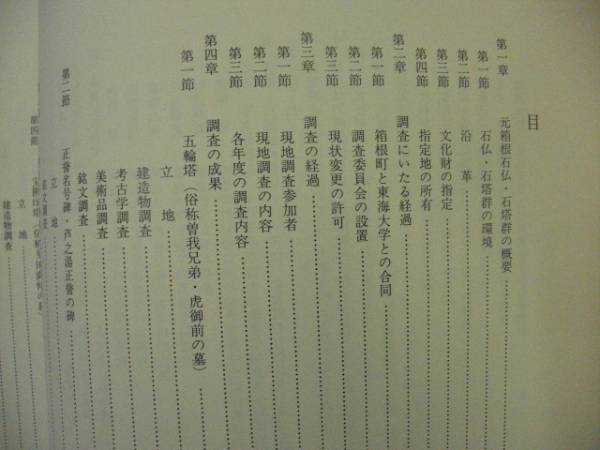 目
第一章 元箱根石仏・石塔群の概要
第一節 石仏・石塔群の環境
第二節 沿革
第三節 文化財の指定
第四節 指定地の所有
第二章 調査にいたる経過
第一節 箱根町と東海大学との合同
第二節 調査委員会の設置
第三節 現状変更の許可
第三章 調査の経過
第一節 現地調査参加者
第二節 現地調査の内容
第三節 各年度の調査内容
第四章 調査の成果
第一節 五輪塔（俗称曽我兄弟・虎御前の墓）
立地
建造物調査
考古学調査
美術品調査
銘文調査
第二節 正誉名号碑・芦之湯正誉の碑
立地
銘文調査
第四節 宝篋印塔
立地
建造物調査